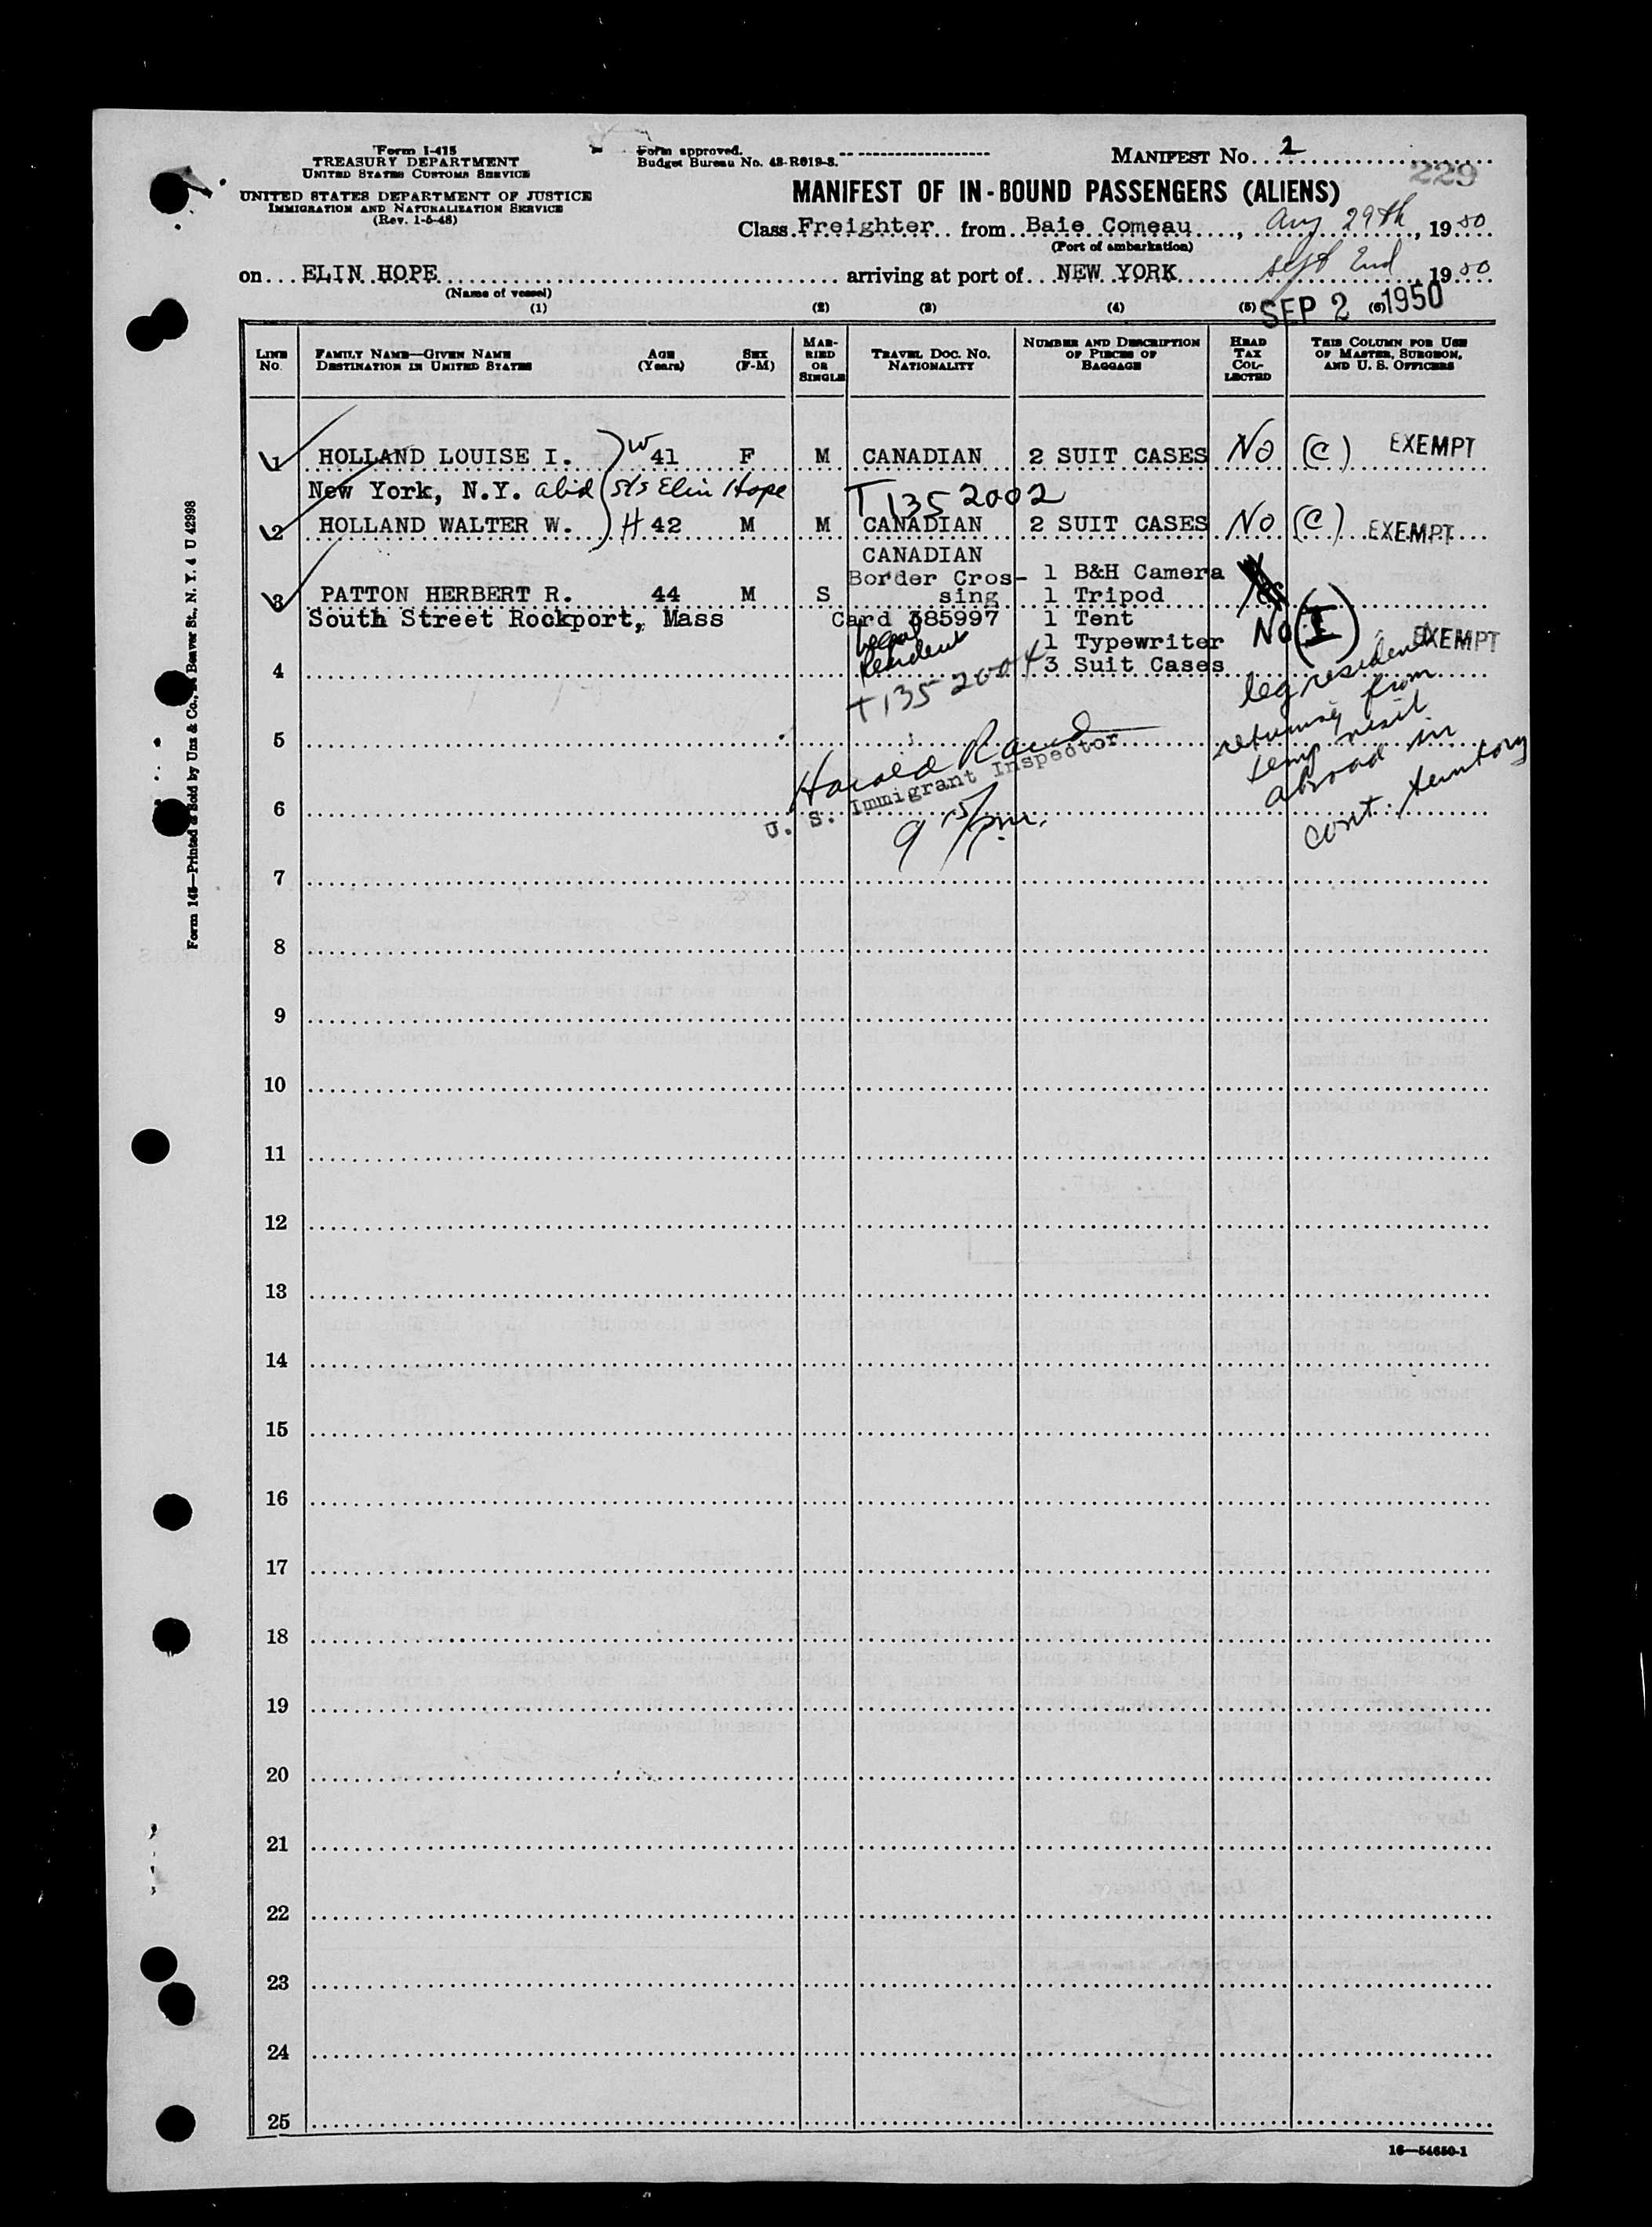 Form I-415
TREASURY DEPARTMENT
UNITED STATES CUSTOMS SERVICE
UNITED STATES DEPARTMENT OF JUSTICE
IMMIGRATION AND NATURALIZATION SERVICE
(Rev. 1-5-48)
Form approved.
Budget Bureau No. 43-R019-3.
MANIFEST No. 2
229
MANIFEST OF IN-BOUND PASSENGERS (ALIENS)
Class Freighter from Baie Comeau, Aug 29th, 1950
(Port of embarkation)
on ELIN HOPE arriving at port of NEW YORK Sept 2nd 1950
(Name of vessel)
SEP 2 1950
(1) (2) (3) (4) (5) (6)
LINE No. FAMILY NAME—GIVEN NAME DESTINATION IN UNITED STATES AGE (Years) SEX (F-M) MARRIED OR SINGLE TRAVEL DOC. NO. NATIONALITY NUMBER AND DESCRIPTION OF PIECES OF BAGGAGE HEAD TAX COLLECTED THIS COLUMN FOR USE OF MASTER, SURGEON, AND U. S. OFFICERS
1 HOLLAND LOUISE I. W 41 F M CANADIAN 2 SUIT CASES No (C) EXEMPT
New York, N.Y. S/S Elin Hope T1352002
2 HOLLAND WALTER W. H 42 M M CANADIAN 2 SUIT CASES No (C) EXEMPT
CANADIAN
Border Cros- 1 B&H Camera
3 PATTON HERBERT R. 44 M S sing 1 Tripod Yes
South Street Rockport, Mass Card 385997 1 Tent No (I) EXEMPT
legal 1 Typewriter
4 Resident 3 Suit Cases
T1352004
leg resident
returning from
temp visit
abroad in
cont. territory
5
Harold Rand
U. S. Immigrant Inspector
6
9 15 pm.
7
8
9
10
11
12
13
14
15
16
17
18
19
20
21
22
23
24
25
16—54650-1
Form 145—Printed & Sold by Unz & Co., Beaver St., N. Y. 4 U 42998